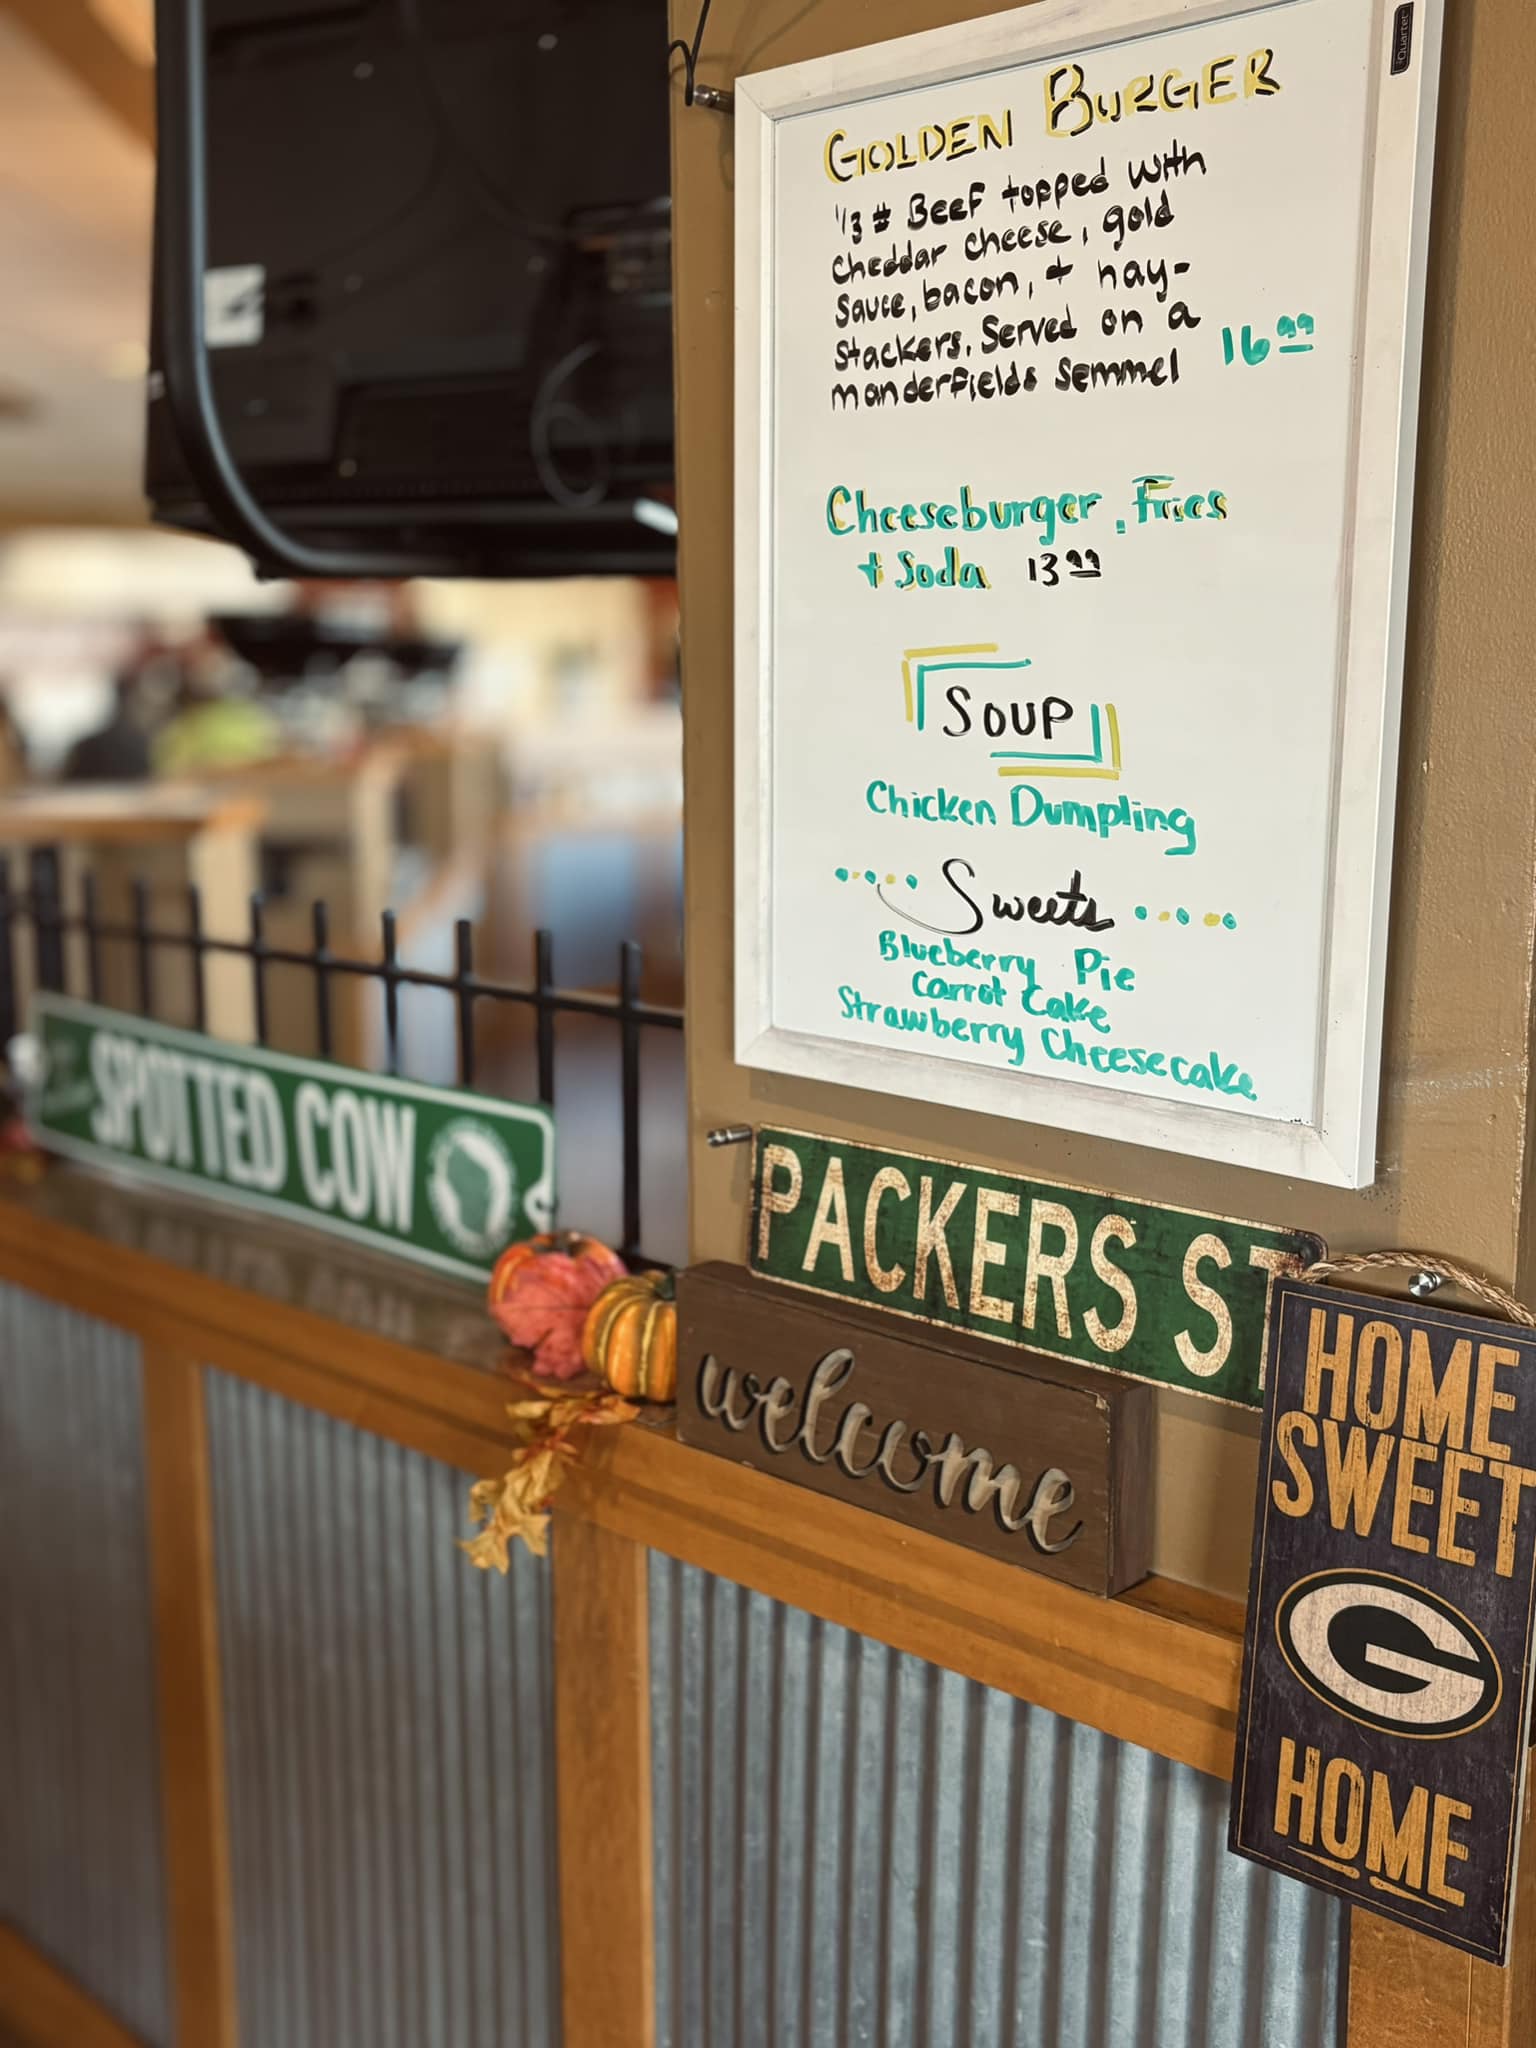 GOLDEN BURGER
1/3 # BEEF topped with
cheddar cheese, gold
sauce, bacon, + hay-
stackers. Served on a
manderfields Semmel 16.99
Cheeseburger, Fries
+ Soda 13.99
SOUP
Chicken Dumpling
Sweets
Blueberry Pie
Carrot Cake
Strawberry Cheesecake
Quartet
SPOTTED COW
PACKERS ST
welcome
HOME
SWEET
G
HOME